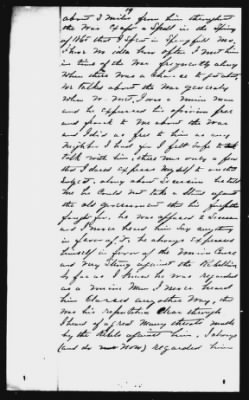 19
about 3 miles from him throughout
the War Except a Spell in the Spring
of 1865 that I Spent in Springfield Mo,
I have no idea how often I met him
in time of the War frequently along
When there was a chance to pass
We talked about the War generally
When we met, I was a Union man
and he expressed his opinion free
and frank to me about the War
and I did as free to him as any
Neighbor I had for I felt Safe to
talk with him, there was only a few
that I dared express myself to on the
subject, along about Secession he told
me he Could not take a Stand against
the old government that his forefathers
fought for. he was opposed to Secession
and I never heard him Say anything
in favor of it, he always expressed
himself in favor of the Union Cause
and very Strong against the Rebellion
So far as I know he was regarded
as a Union Man I never heard
him Classed any other way, that
was his reputation clear through
I heard of a great Many threats made
by the Rebels against him. I always
(and do now) regarded him